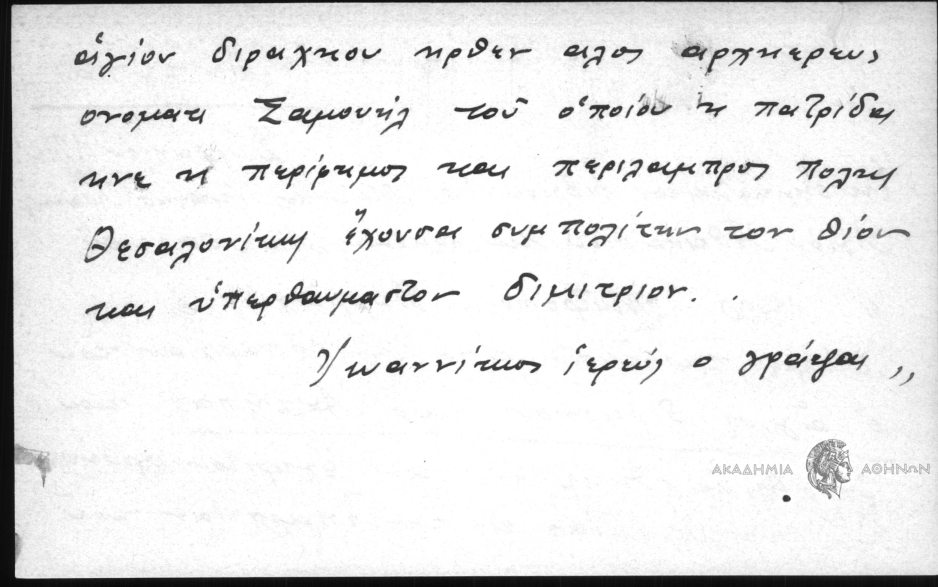 ἁγίου διραχηου ηρθεν αλος αρχηερευς
ονοματι Σαμουὴλ τοῦ ὁποίου η πατρίδα
ηνε η περίφημος και περιλαμπρος πολης
Θεσαλονίκη ἔχουσα συμπολίτην τον θίον
και ὑπερθαυμαστον διμιτριον. .
Ἰωαννίκιος ἱερεὺς ο γράψας ,,
ΑΚΑΔΗΜΙΑ ΑΘΗΝΩΝ